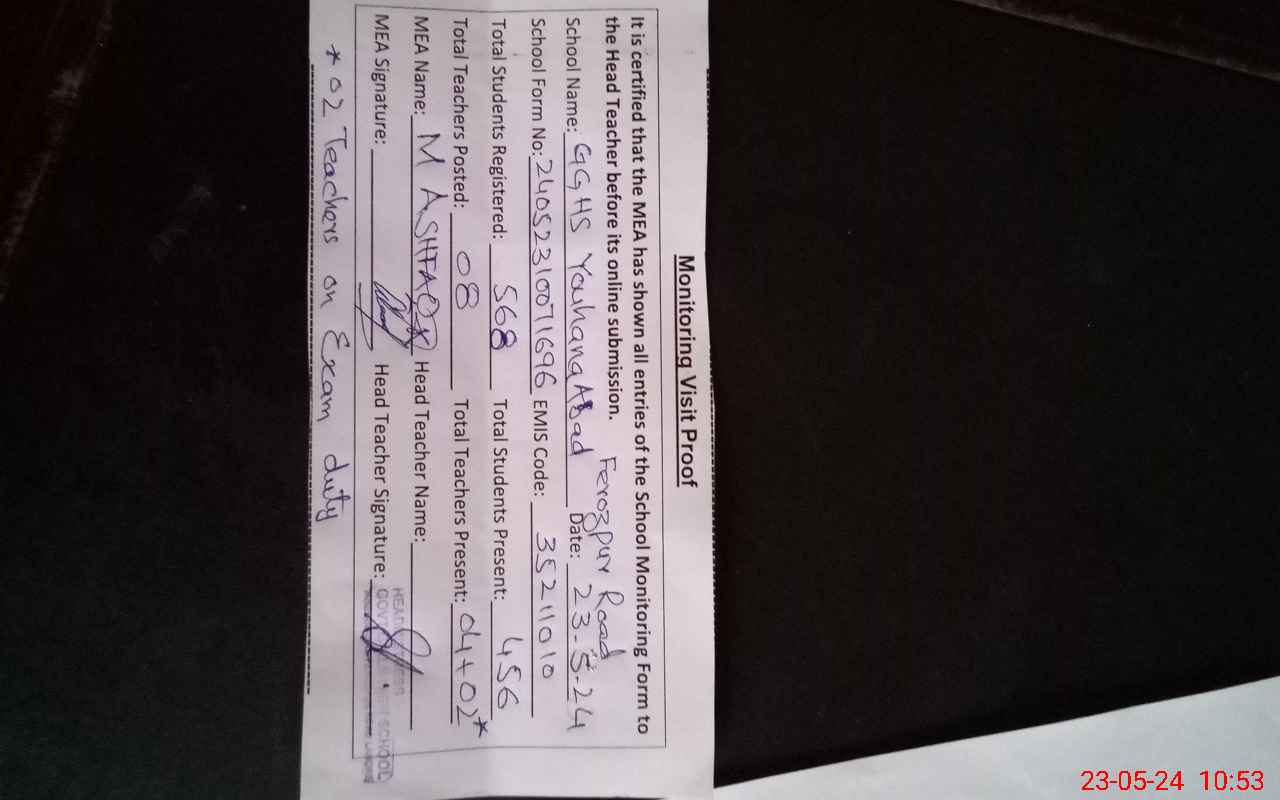 Monitoring Visit Proof
It is certified that the MEA has shown all entries of the School Monitoring Form to
the Head Teacher before its online submission.
Ferozpur Road
School Name: GGHS YouhanaAbad Date: 23-5-24
School Form No: 24052310071696 EMIS Code: 35211010
Total Students Registered: 568 Total Students Present: 456
Total Teachers Posted: 08 Total Teachers Present: 04+02*
MEA Name: M ASHFAQ Head Teacher Name:
MEA Signature: Head Teacher Signature:
GOVT SCHOOL
* 02 Teachers on Exam duty
23-05-24 10:53